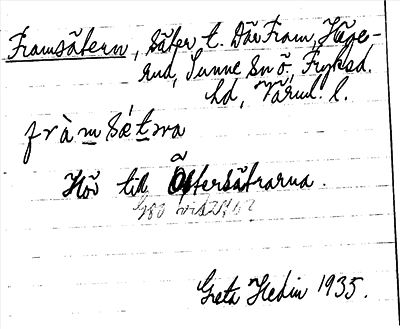 Framsätern, säter t. Där Fram, Häge-
rud, Sunne sn ö., Fryksd.
hd, Värml. l.
fràmsætra
Hör till Östersätrarna.
Greta Hedin 1935.